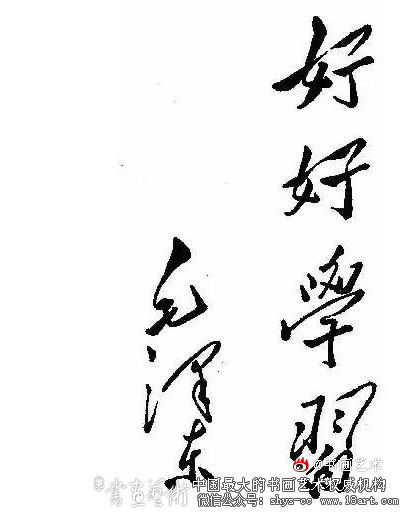 好好學習
毛泽东
@书画艺术
书画艺术
中国最大的书画艺术权威机构
微信公众号：shys-cc www.18art.com